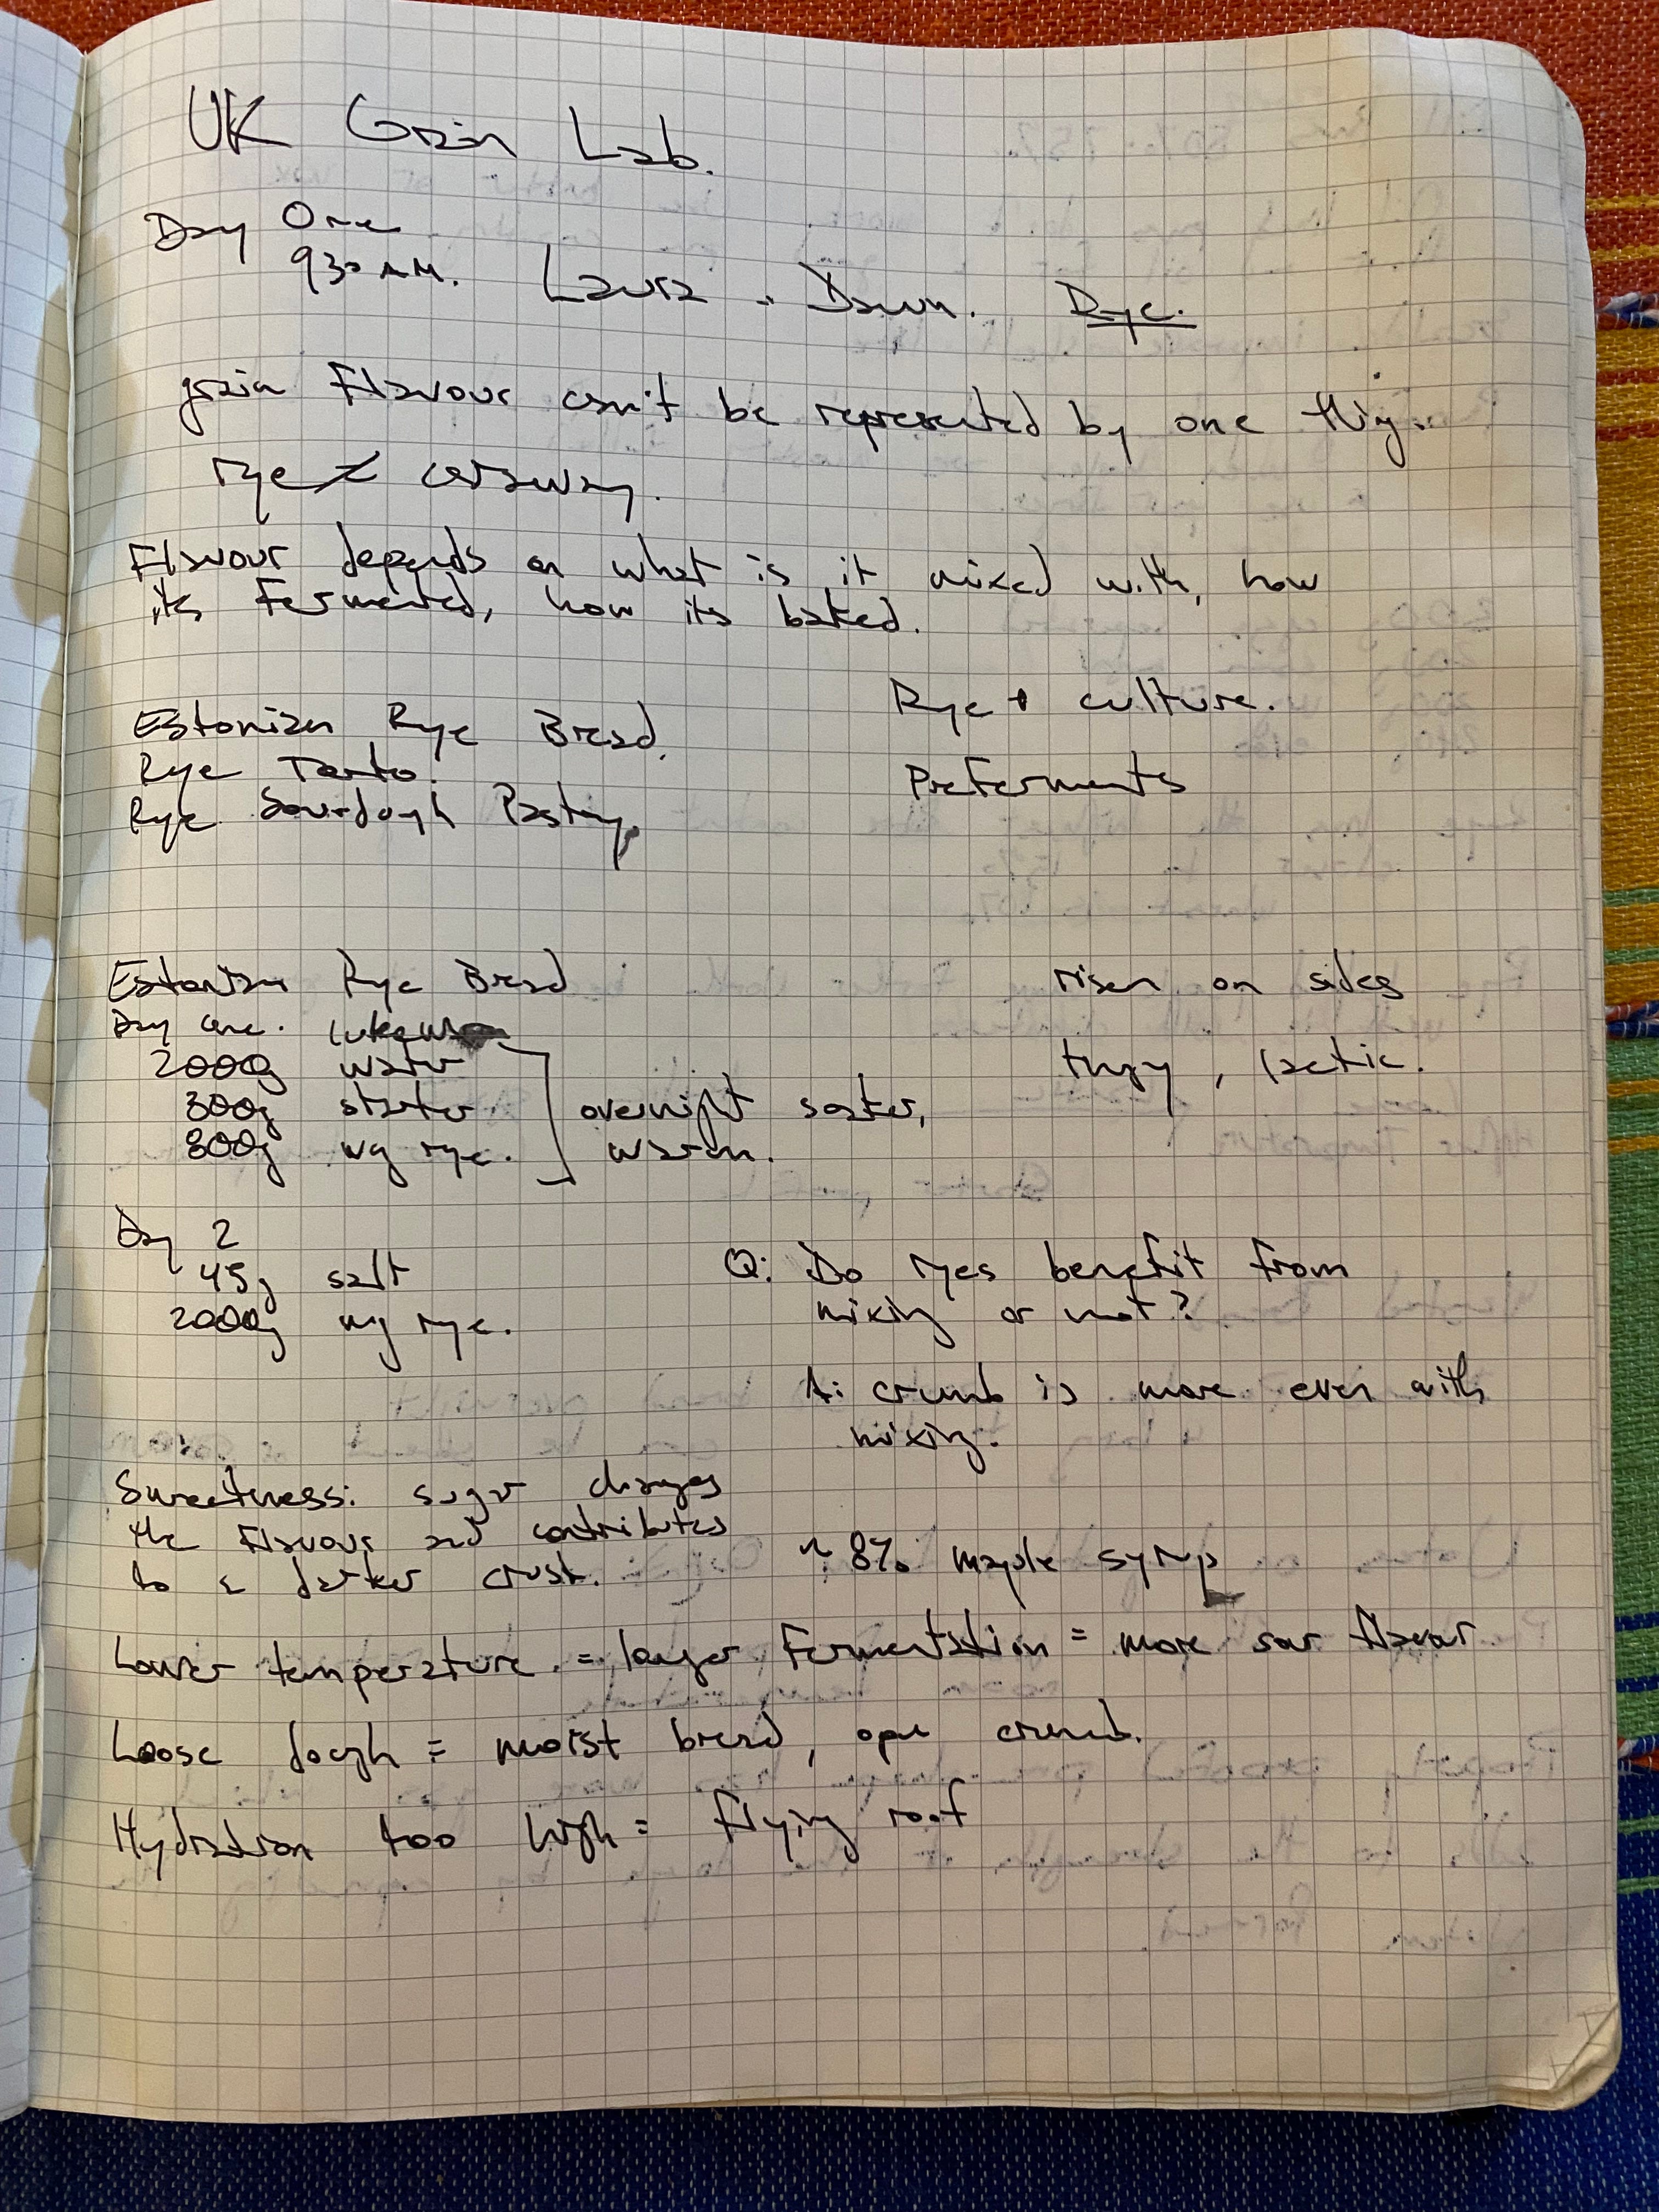 UK Grain Lab.
Day One
930 AM. Laura Dawn. Rye.
grain Flavour can't be represented by one thing.
rye ≠ caraway.
Flavour depends on what is it mixed with, how
its Fermented, how its baked.
Estonian Rye Bread.
Rye
Rye Sourdough Pastry.
Rye + culture.
Preferments
Estonian Rye Bread
Day one. lukewarm
2000g water
300g starter
800g wg rye.
overnight
warm.
risen on sides
tngy, lactic.
Day 2
45g salt
2000g wg rye.
Q: Do ryes benefit from
mixing or not?
A: crumb is more even with
mixing.
Sweetness: sugar changes
the Flavour and contributes
to a darker crust.
~ 8% maple syrup
Lower temperature. = longer Fermentation = more sour flavour
Loose dough = moist bread, open crumb.
Hydration too high = Flying roof